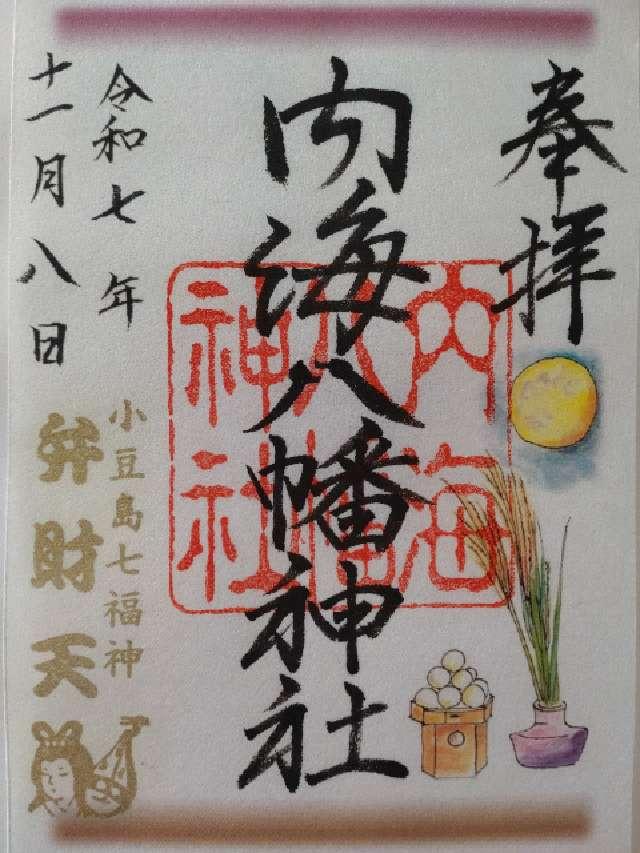 奉拝
内海八幡神社
内海八幡神社
令和七年
十一月八日
小豆島七福神
弁財天